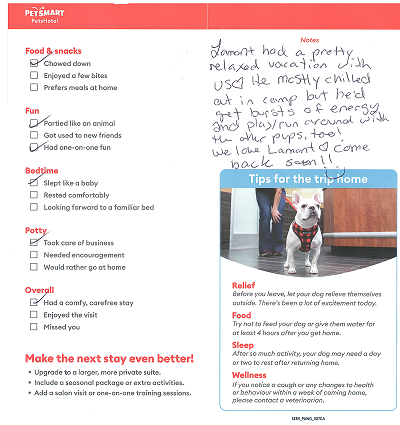 PETSMART
PetsHotel
Food & snacks
Chowed down
Enjoyed a few bites
Prefers meals at home
Fun
Partied like an animal
Got used to new friends
Had one-on-one fun
Bedtime
Slept like a baby
Rested comfortably
Looking forward to a familiar bed
Potty
Took care of business
Needed encouragement
Would rather go at home
Overall
Had a comfy, carefree stay
Enjoyed the visit
Missed you
Make the next stay even better!
• Upgrade to a larger, more private suite.
• Include a seasonal package or extra activities.
• Add a salon visit or one-on-one training sessions.
Notes
Lamont had a pretty
relaxed vacation with
us♡ He mostly chilled
out in camp but he'd
get bursts of energy
and play/run around with
the other pups, too!
we love Lamont♡ come
back soon!!
Tips for the trip home
Relief
Before you leave, let your dog relieve themselves
outside. There's been a lot of excitement today.
Food
Try not to feed your dog or give them water for
at least 4 hours after you get home.
Sleep
After so much activity, your dog may need a day
or two to rest after returning home.
Wellness
If you notice a cough or any changes to health
or behaviour within a week of coming home,
please contact a veterinarian.